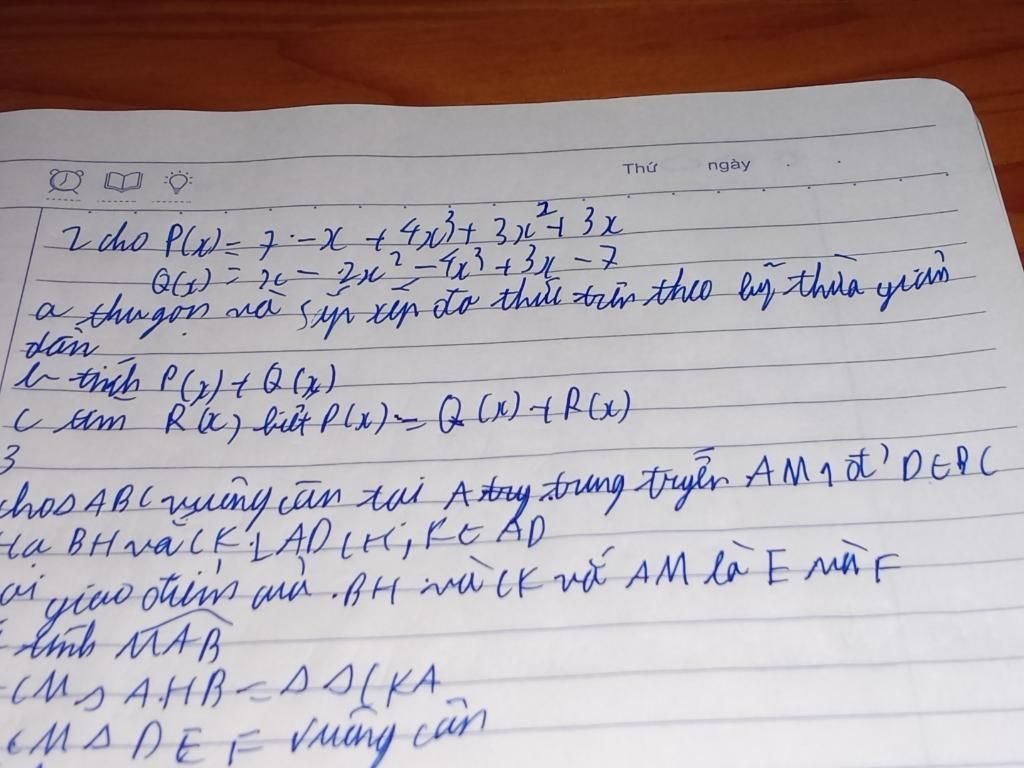 Thứ ngày
2 cho P(x) = 7 - x + 4x³ + 3x² + 3x
Q(x) = x - 2x² - 4x³ + 3x - 7
a thu gọn và sắp xếp đa thức trên theo luỹ thừa giản
dần
b tính P(x) + Q(x)
c tìm R(x) biết P(x) = Q(x) + R(x)
3
cho Δ ABC vuông cân tại A trung truyễn AM 1 đt' D∈BC
Hạ BH và CK ⊥ AD (H, K ∈ AD
ọi giao điểm của BH và CK vớ AM là E và F
tính MAB
CM Δ AHB = Δ Δ CKA
CM Δ DEF vuông cân